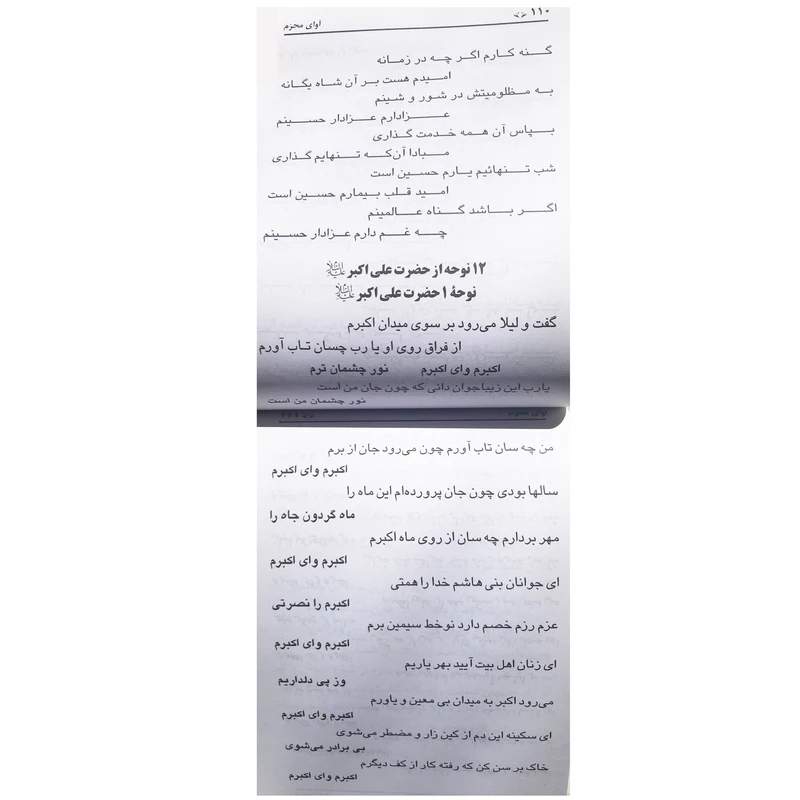 ۱۱۰
آوای محرّم
گـــنه کـارم اگـر چـه در زمـانه
امـیدم هست بـر آن شـاه یگـانه
بـه مـظلومیتش در شور و شینم
عــزادارم عــزادار حسـینم
بـپاس آن همه خـدمت گـذاری
مـبادا آن‌کـه تـنهایم گـذاری
شب تـنهائیم یـارم حسـین است
امـید قـلب بـیمارم حسـین است
اگـر بـاشد گـناه عـالمینم
چـه غـم دارم عـزادار حسـینم
۱۲ نوحه از حضرت علی اکبر علیه‌السلام
نوحهٔ ۱ حضرت علی اکبر علیه‌السلام
گفت و لیلا می‌رود بر سوی میدان اکبرم
از فراق روی او یا رب چسان تـاب آورم
اکبرم وای اکبرم نور چشمان ترم
یارب این زیباجوان دانی که چون جان من است
نور چشمان من است
من چه سان تاب آورم چون می‌رود جان از برم
اکبرم وای اکبرم
سالها بودی چون جان پرورده‌ام این ماه را
ماه گردون جاه را
مهر بردارم چه سان از روی ماه اکبرم
اکبرم وای اکبرم
ای جوانان بنی هاشم خدا را همتی
اکبرم را نصرتی
عزم رزم خصم دارد نوخط سیمین برم
اکبرم وای اکبرم
ای زنان اهل بیت آیید بهر یاریم
وز پی دلداریم
می‌رود اکبر به میدان بی معین و یاورم
اکبرم وای اکبرم
ای سکینه این دم از کین زار و مضطر می‌شوی
بی برادر می‌شوی
خاک بر سن کن که رفته کار از کف دیگرم
اکبرم وای اکبرم